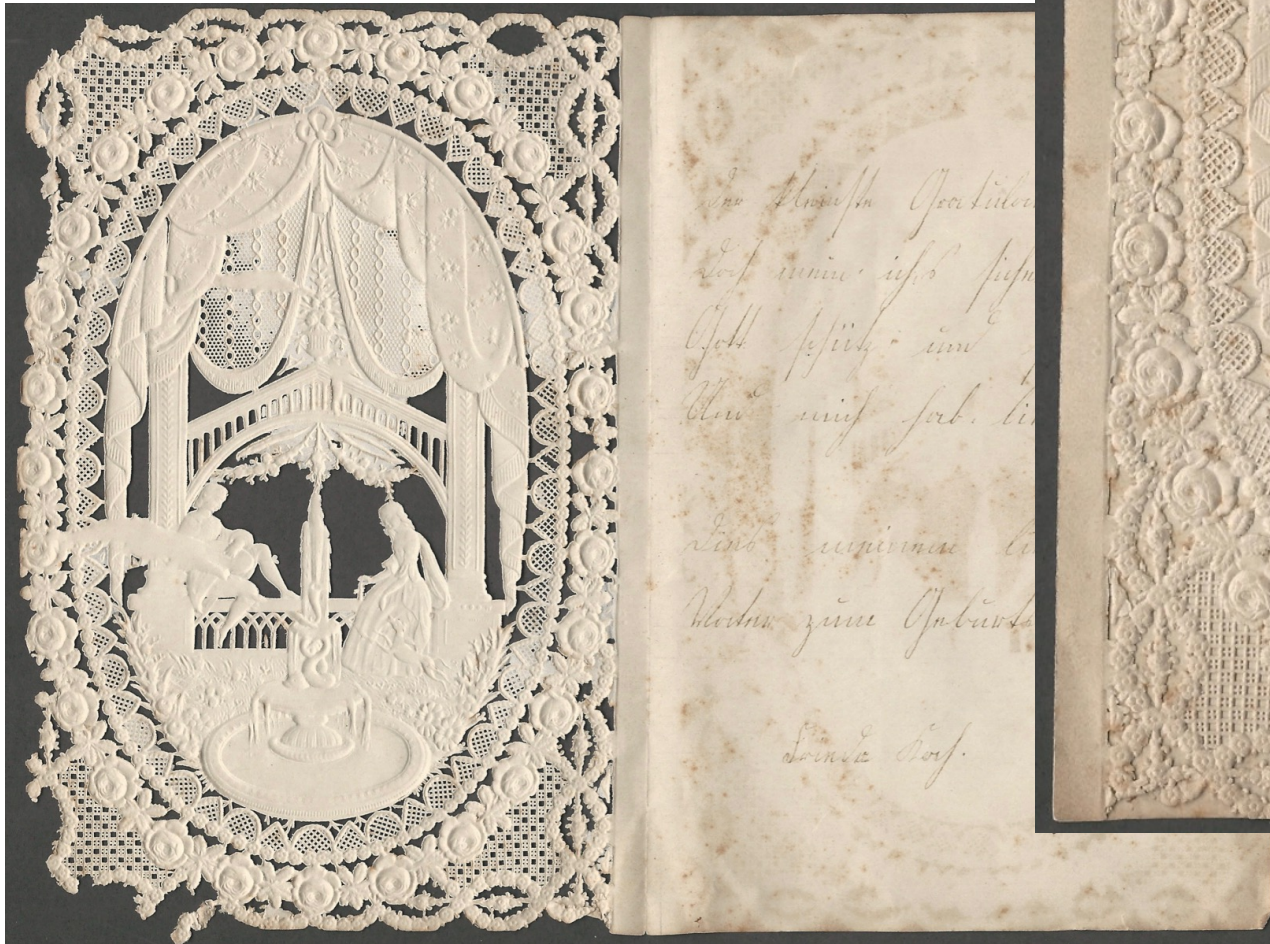 Der kleinste Gratula
Doch mein ichs siche
Gott schütz und
Und mich hab li
Dies meinem li
Vater zum Geburts
Frieda Koch.